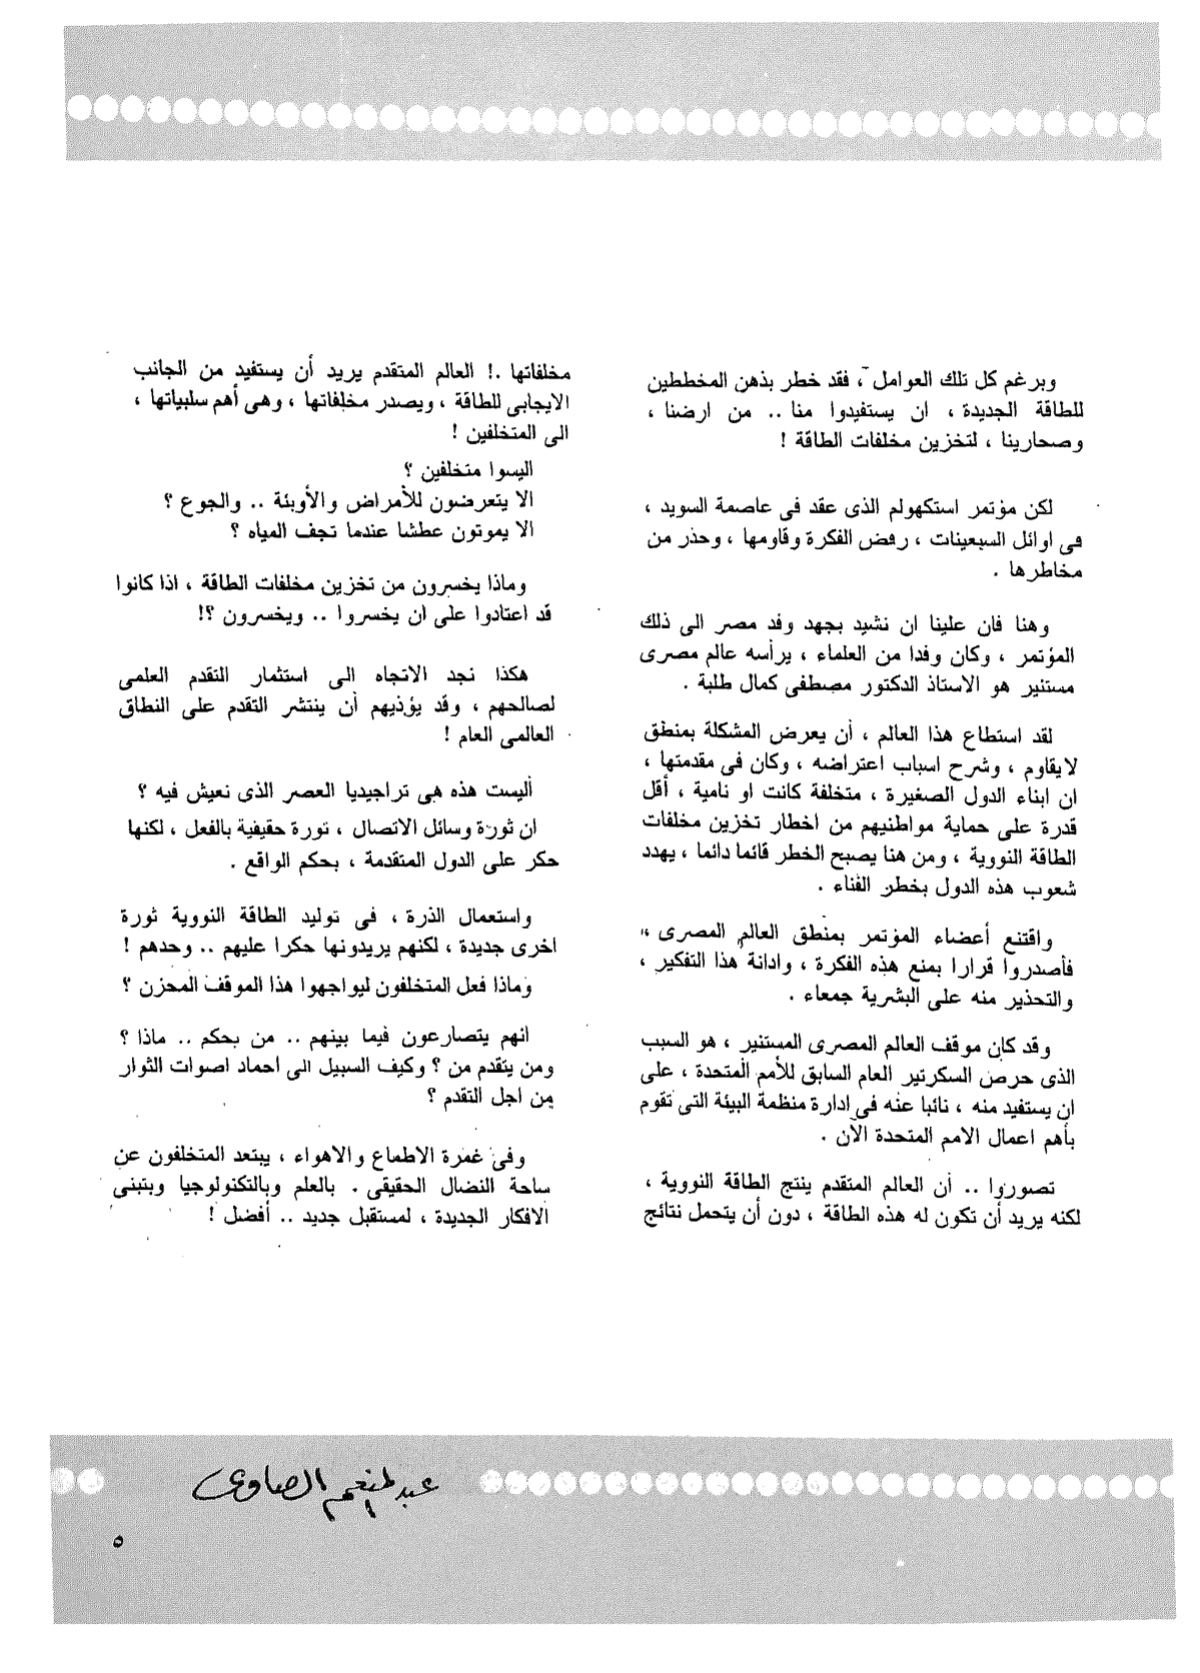 وبرغم كل تلك العوامل ، فقد خطر بذهن المخططين
للطاقة الجديدة ، ان يستفيدوا منا .. من ارضنا ،
وصحارينا ، لتخزين مخلفات الطاقة !
لكن مؤتمر استكهولم الذى عقد فى عاصمة السويد ،
فى اوائل السبعينات ، رفض الفكرة وقاومها ، وحذر من
مخاطرها .
وهنا فان علينا ان نشيد بجهد وفد مصر الى ذلك
المؤتمر ، وكان وفدا من العلماء ، يرأسه عالم مصرى
مستنير هو الاستاذ الدكتور مصطفى كمال طلبة .
لقد استطاع هذا العالم ، أن يعرض المشكلة بمنطق
لايقاوم ، وشرح اسباب اعتراضه ، وكان فى مقدمتها ،
ان ابناء الدول الصغيرة ، متخلفة كانت او نامية ، أقل
قدرة على حماية مواطنيهم من اخطار تخزين مخلفات
الطاقة النووية ، ومن هنا يصبح الخطر قائما دائما ، يهدد
شعوب هذه الدول بخطر الفناء .
واقتنع أعضاء المؤتمر بمنطق العالم المصرى ،
فأصدروا قرارا بمنع هذه الفكرة ، وادانة هذا التفكير ،
والتحذير منه على البشرية جمعاء .
وقد كان موقف العالم المصرى المستنير ، هو السبب
الذى حرص السكرتير العام السابق للأمم المتحدة ، على
ان يستفيد منه ، نائبا عنه فى ادارة منظمة البيئة التى تقوم
بأهم اعمال الامم المتحدة الآن .
تصوروا .. أن العالم المتقدم ينتج الطاقة النووية ،
لكنه يريد أن تكون له هذه الطاقة ، دون أن يتحمل نتائج
مخلفاتها .! العالم المتقدم يريد أن يستفيد من الجانب
الايجابى للطاقة ، ويصدر مخلفاتها ، وهى أهم سلبياتها ،
الى المتخلفين !
اليسوا متخلفين ؟
الا يتعرضون للأمراض والأوبئة .. والجوع ؟
الا يموتون عطشا عندما تجف المياه ؟
وماذا يخسرون من تخزين مخلفات الطاقة ، اذا كانوا
قد اعتادوا على ان يخسروا .. ويخسرون ؟!
هكذا نجد الاتجاه الى استثمار التقدم العلمى
لصالحهم ، وقد يؤذيهم أن ينتشر التقدم على النطاق
العالمى العام !
أليست هذه هى تراجيديا العصر الذى نعيش فيه ؟
ان ثورة وسائل الاتصال ، ثورة حقيقية بالفعل ، لكنها
حكر على الدول المتقدمة ، بحكم الواقع .
واستعمال الذرة ، فى توليد الطاقة النووية ثورة
اخرى جديدة ، لكنهم يريدونها حكرا عليهم .. وحدهم !
وماذا فعل المتخلفون ليواجهوا هذا الموقف المحزن ؟
انهم يتصارعون فيما بينهم .. من بحكم .. ماذا ؟
ومن يتقدم من ؟ وكيف السبيل الى احماد اصوات الثوار
من اجل التقدم ؟
وفى غمرة الاطماع والاهواء ، يبتعد المتخلفون عن
ساحة النضال الحقيقى . بالعلم وبالتكنولوجيا وبتبنى
الافكار الجديدة ، لمستقبل جديد .. أفضل !
عبد المنعم الصاوى
٥